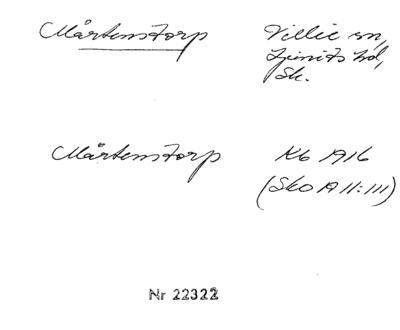 Mårtenstorp Villie sn,
Ljunits hd,
Sk.
Mårtenstorp Kb 1916
(Sko A II:III)
Nr 22322